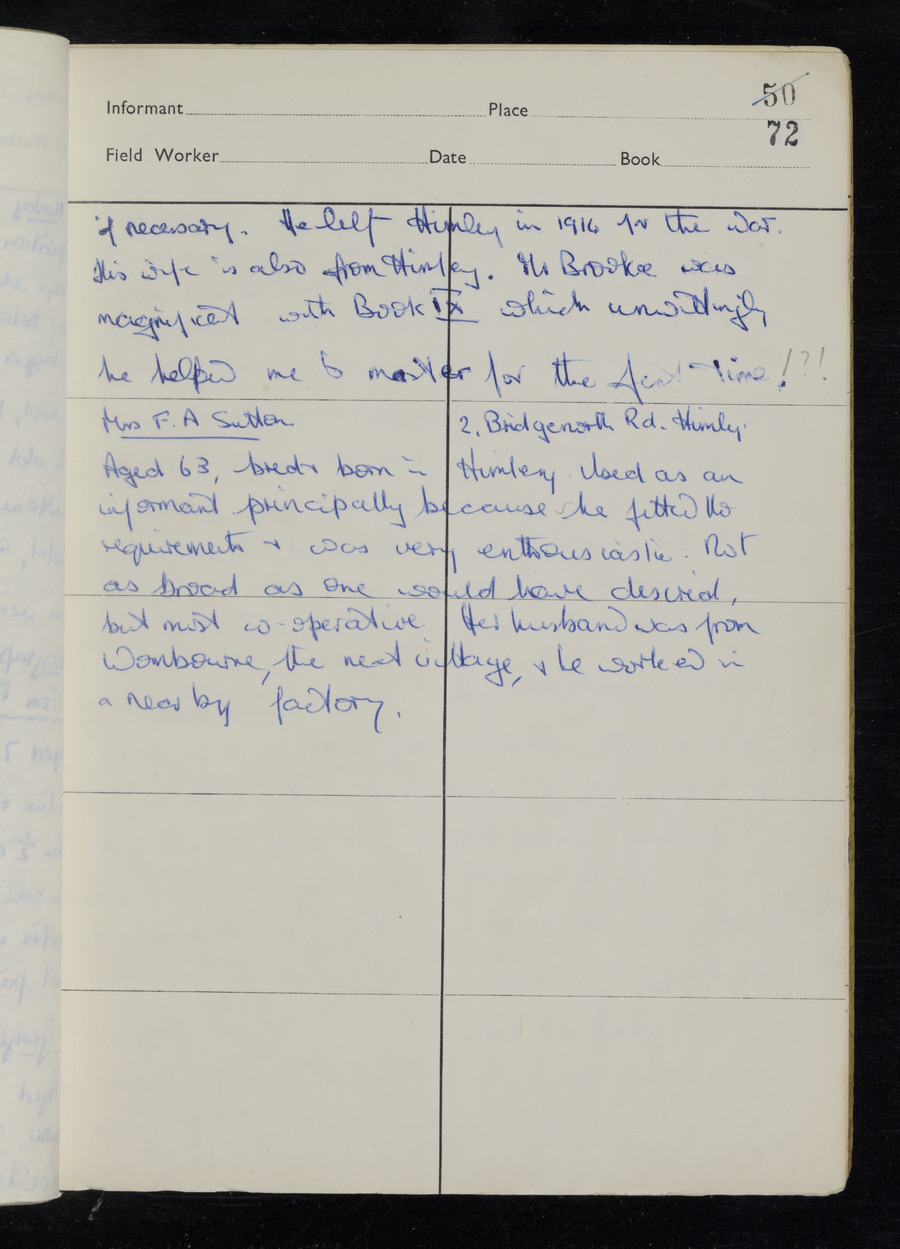 Informant Place 50
72
Field Worker Date Book
if necessary. He left Himley in 1916 for the War.
His wife is also from Himley. Mr Brooke was
magnificent with Book IX which unwittingly
he helped me to master for the first time!!?!
Mrs F. A Sutton 2, Bridgenorth Rd. Himley.
Aged 63, bred & born in Himley. Used as an
informant principally because she fitted the
requirements & was very enthousiastic. Not
as broad as one would have desired,
but most co-operative. Her husband was from
Wombourne, the next village, & he worked in
a near by factory.